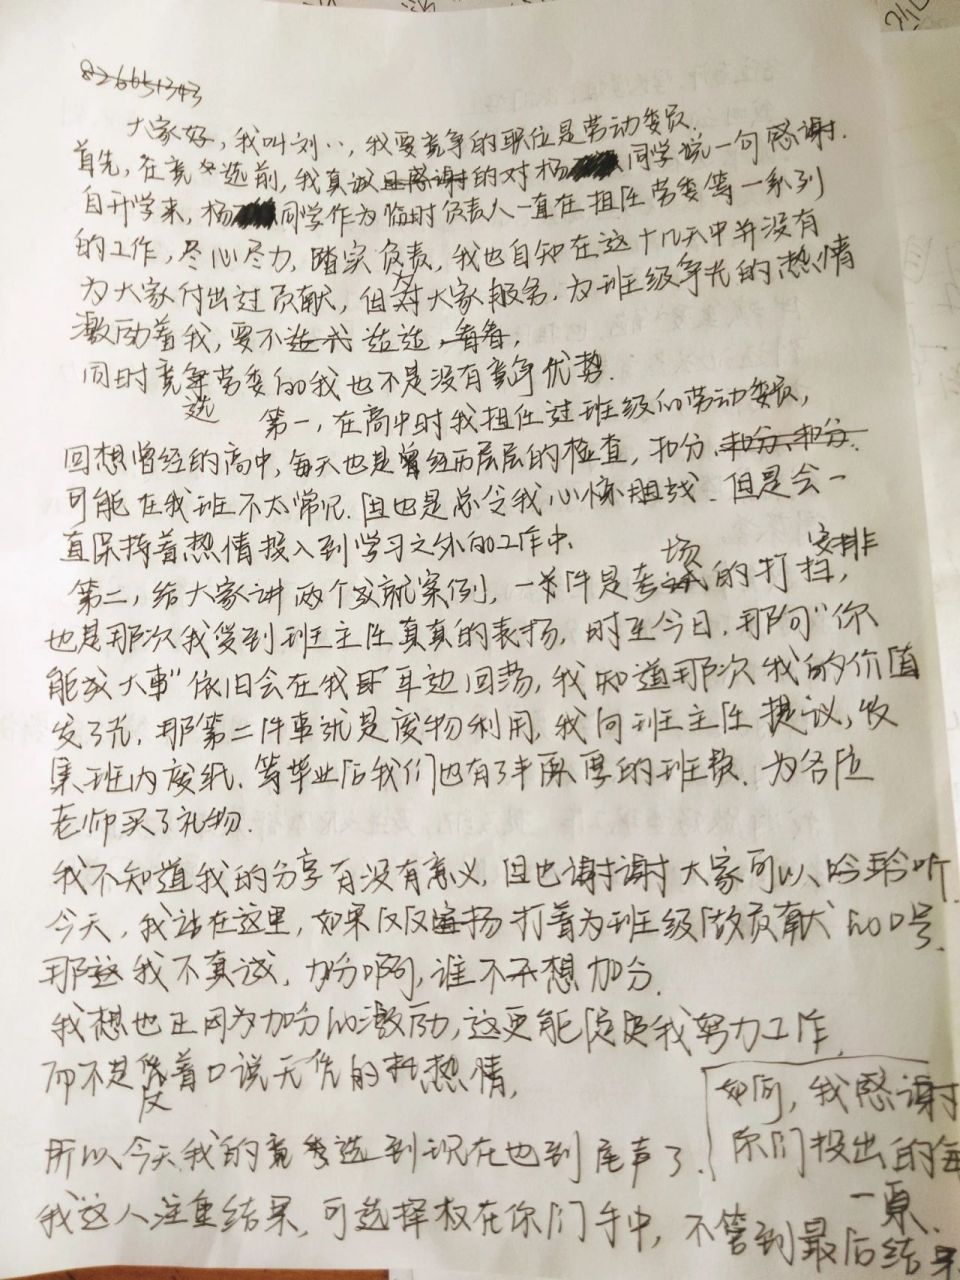 826651343
大家好，我叫刘‥，我要竞争的职位是劳动委员.
首先，在竞选前，我真诚的对杨同学说一句感谢.
自开学来，杨同学作为临时负责人一直在担任常委等一系列
的工作，尽心尽力，踏实负责，我也自知在这十几天中并没有
为大家付出过贡献，但对大家服务，为班级争光的热情
激励着我，要不选选，
同时竞选常委的我也不是没有竞争优势.
第一，在高中时我担任过班级的劳动委员，
回想曾经的高中，每天也是曾经历层层的检查，扣分，扣分、扣分.
可能在我班不太常见.但也是总令我心惊胆战.但是会一
直保持着热情投入到学习之外的工作中.
第二，给大家讲两个成就案例，一件是考场的打扫安排，
也是那次我受到班主任真真的表扬，时至今日，那句"你
能成大事"依旧会在我耳边回荡，我知道那次我的价值
发了光.那第二件事就是废物利用，我向班主任提议，收
集班内废纸.等毕业后我们也有了丰厚的班费.为各位
老师买了礼物.
我不知道我的分享有没有意义，但也谢谢大家可以聆听.
今天，我站在这里，如果仅仅打着为班级做贡献的口号.
那我不真诚，加分啊，谁不想加分.
我想也正因为加分的激励，这更能促使我努力工作.
而不是仅凭着口说无凭的热情，
所以今天我的竞选到现在也到尾声了.
我这人注重结果，可选择权在你们手中，不管到最后结果
如何，我感谢
你们投出的每
一票.